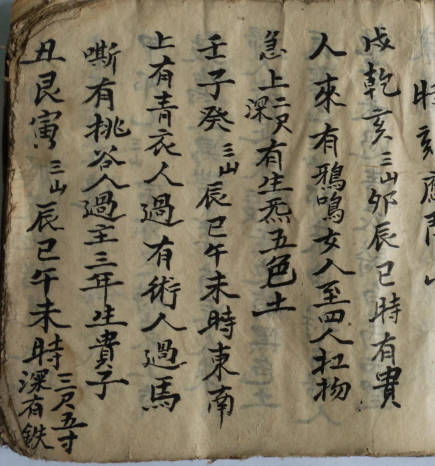 時刻應
戌乾亥三山卯辰巳時有貴
人來有鴉鳴女人至四人扛物
急上深二尺有生炁五色土
壬子癸三山辰巳午未時東南
上有青衣人過有術人過馬
嘶有挑谷人過主三年生貴子
丑艮寅三山辰巳午未時三尺五寸深有鉄